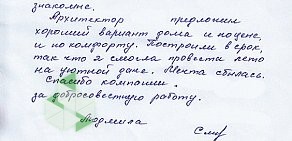 знакомые.
Архитектор предложил
хороший вариант дома и по цене,
и по комфорту. Построили в срок,
так что я смогла провести лето
на уютной даче. Мечта сбылась.
Спасибо компании
за добросовестную работу.
Людмила